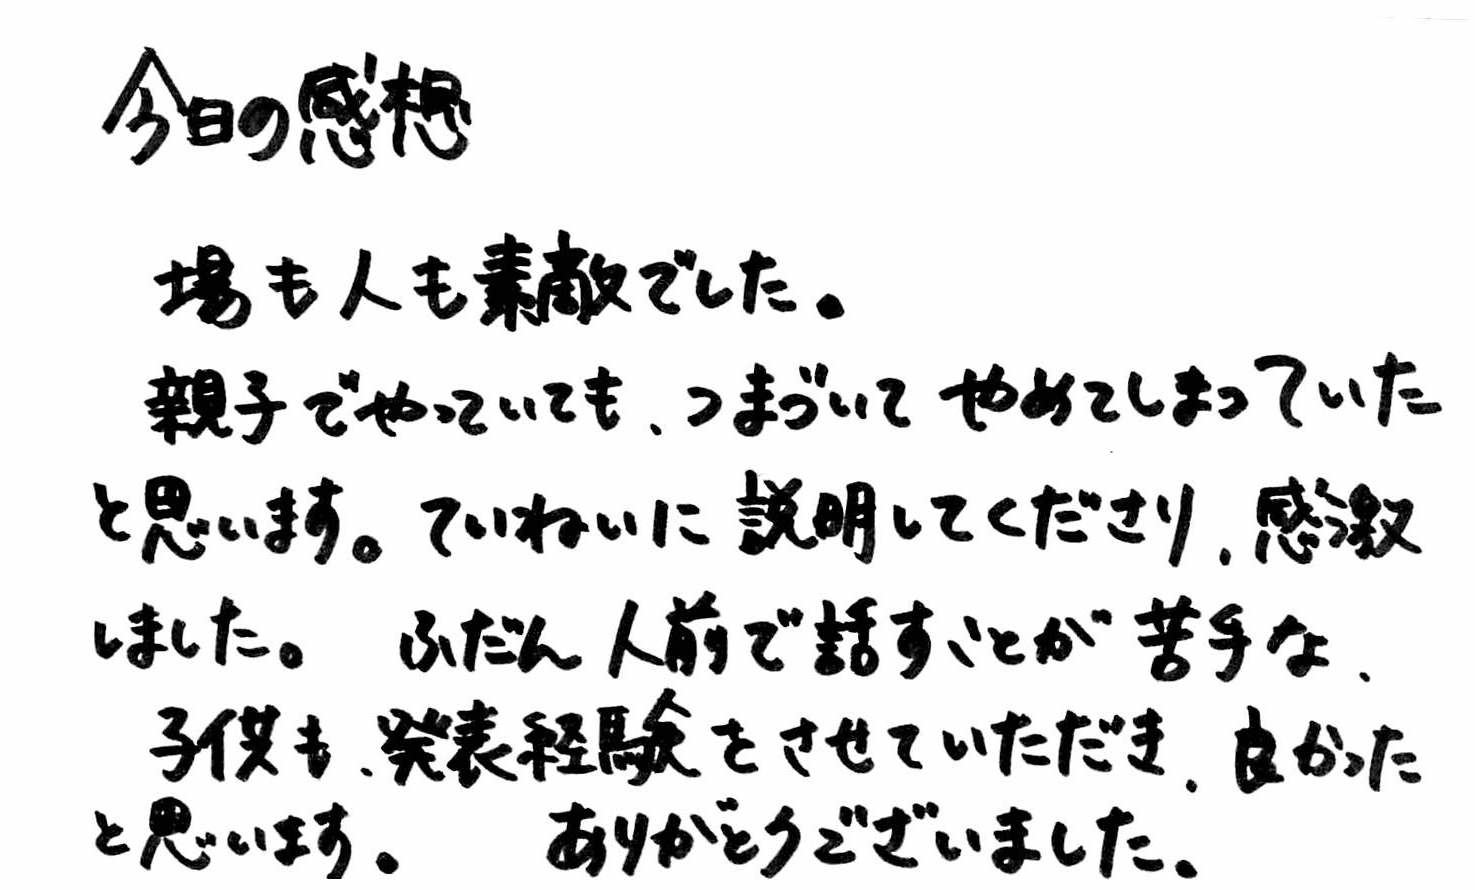 今日の感想
場も人も素敵でした。
親子でやっていても、つまづいて やめてしまっていた
と思います。ていねいに説明してくださり、感激
しました。 ふだん人前で話すことが苦手な、
子供も、発表経験をさせていただき、良かった
と思います。 ありがとうございました。